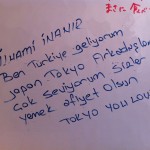 Ben Türkiye geliyorum
Japon Tokyo Arkadaşlar
Çok Seviyorum Sizler
yemek afiyet Olsun
TOKYO YOU LOV